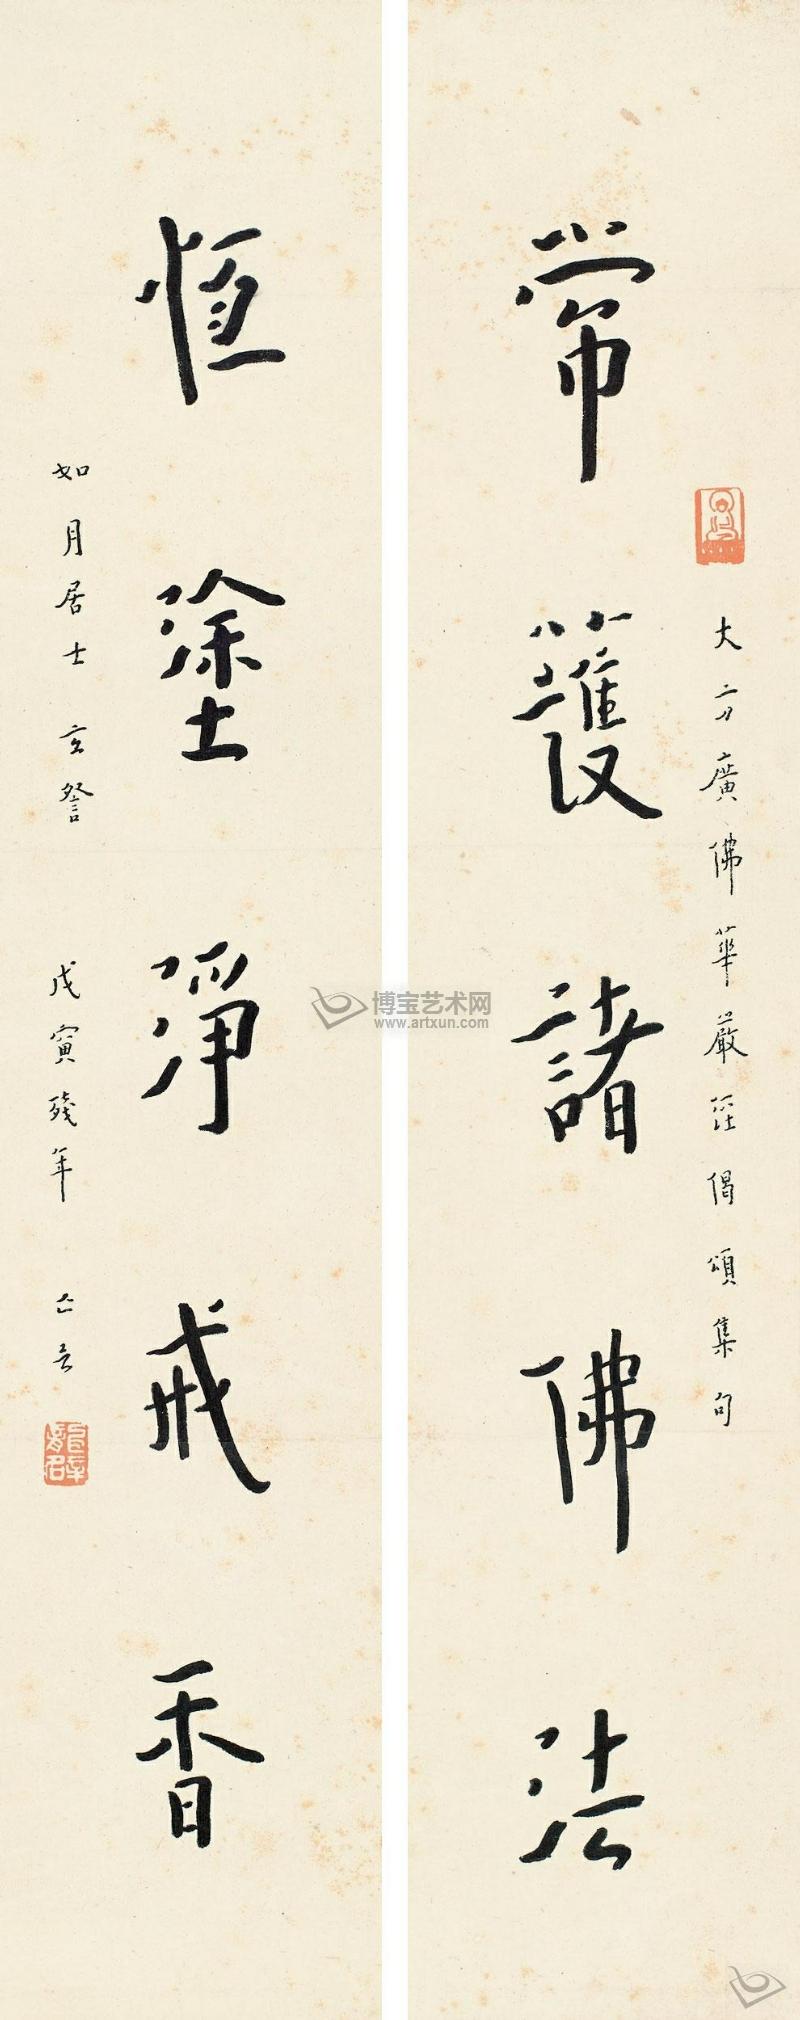 常護諸佛法
大方廣佛華嚴經偈頌集句
恆塗淨戒香
如月居士玄詧
戊寅殘年 亡言
龍臂
博宝艺术网
www.artxun.com